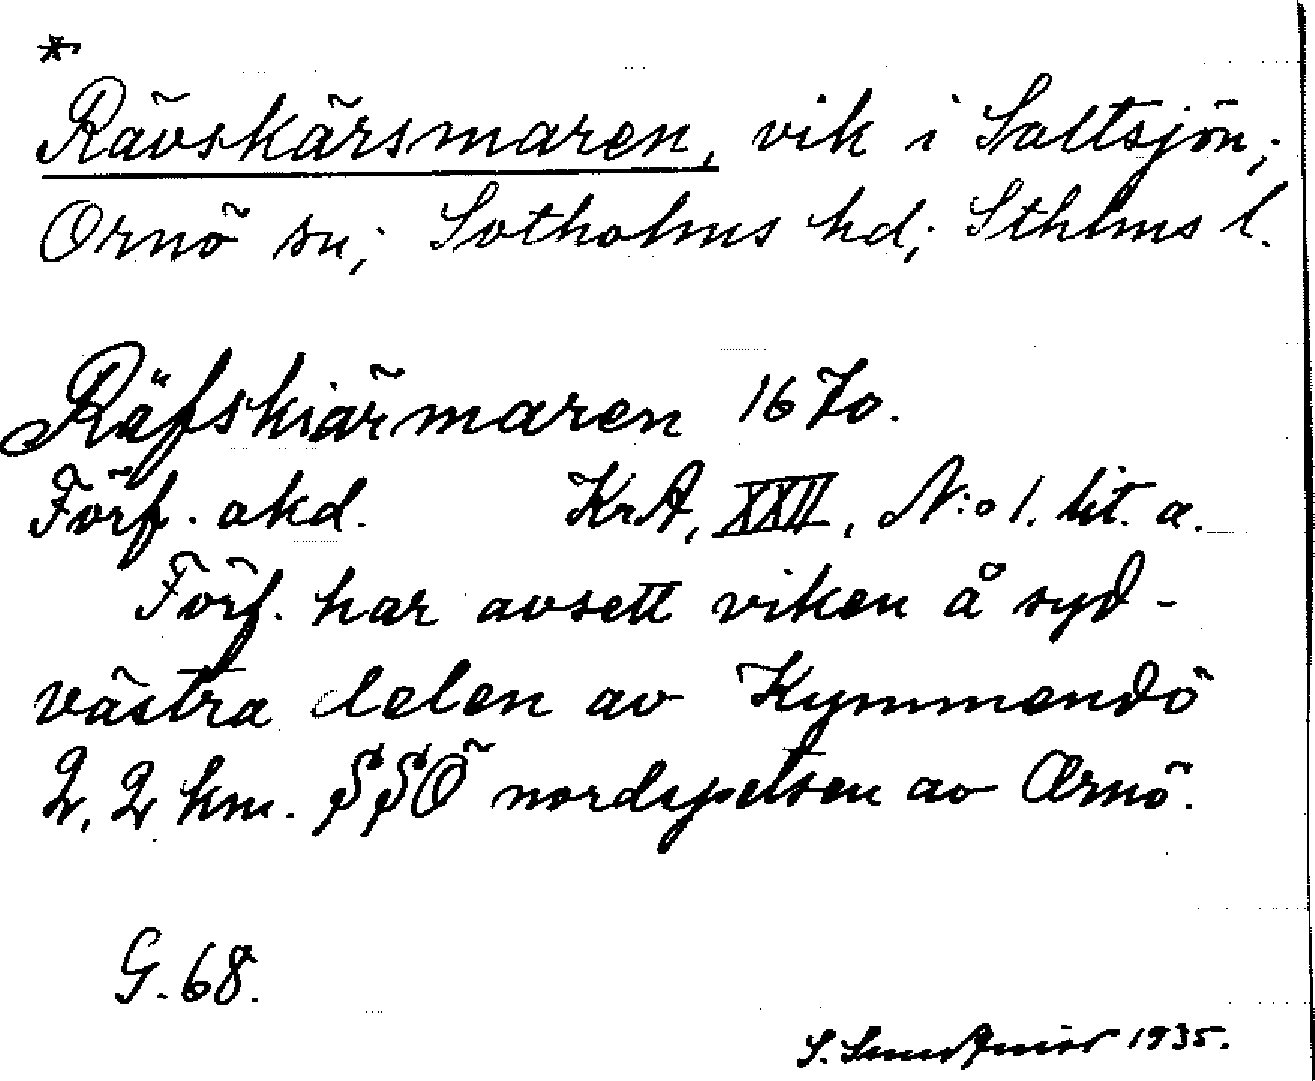 *
Rävskärsmaren, vik i Saltsjön;
Ornö sn; Sotholms hd; Sthlms l.
Räfskiärmaren 1670.
Förf. okd. KrA, XXII, N:o 1. lit. a.
Förf. har avsett viken å syd-
västra delen av Kymmendö
2,2 km. SSÖ nordspetsen av Ornö.
G. 68.
S. 1935.